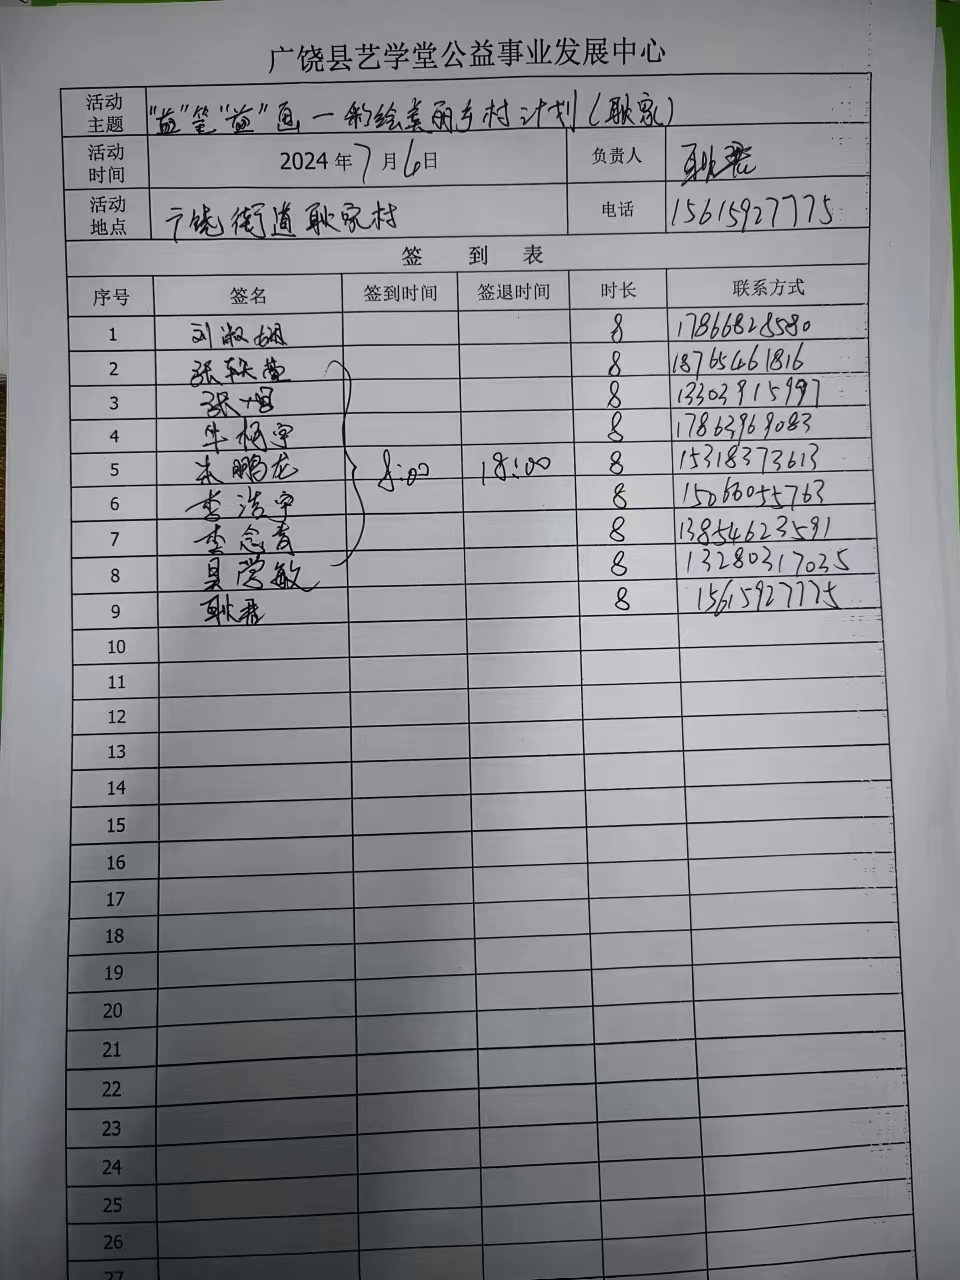 广饶县艺学堂公益事业发展中心
活动主题 "益"笔"益"画一彩绘美丽乡村计划(耿家)
活动时间 2024年7月6日 负责人 耿君
活动地点 广饶街道耿家村 电话 15615927775
签到表
序号 签名 签到时间 签退时间 时长 联系方式
1 刘淑娟 8 17866828580
2 张轶萱 8 18765461816
3 张 8 13303915997
4 牛柯宇 8 17863969083
5 朱鹏龙 8:00 18:00 8 15318373613
6 李浩宇 8 15066055763
7 李念青 8 13854623591
8 吴学敏 8 13280317035
9 耿君 8 15615927775
10
11
12
13
14
15
16
17
18
19
20
21
22
23
24
25
26
27